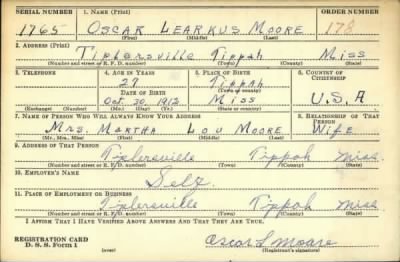 SERIAL NUMBER 1. NAME (Print) ORDER NUMBER
1765 OSCAR LEARKUS MOORE 178
(First) (Middle) (Last)
2. ADDRESS (Print)
Tiplersville Tippah Miss
(Number and street or R. F. D. number) (Town) (County) (State)
3. TELEPHONE 4. AGE IN YEARS 5. PLACE OF BIRTH 6. COUNTRY OF CITIZENSHIP
27 Tippah
DATE OF BIRTH (Town or county)
Oct. 30, 1912 Miss U.S.A
(Exchange) (Number) (Mo.) (Day) (Yr.) (State or country)
7. NAME OF PERSON WHO WILL ALWAYS KNOW YOUR ADDRESS 8. RELATIONSHIP OF THAT PERSON
Mrs. Martha Lou Moore Wife
(Mr., Mrs., Miss) (First) (Middle) (Last)
9. ADDRESS OF THAT PERSON
Tiplersville Tippah Miss.
(Number and street or R. F. D. number) (Town) (County) (State)
10. EMPLOYER'S NAME
Self
11. PLACE OF EMPLOYMENT OR BUSINESS
Tiplersville Tippah Miss
(Number and street or R. F. D. number) (Town) (County) (State)
I AFFIRM THAT I HAVE VERIFIED ABOVE ANSWERS AND THAT THEY ARE TRUE.
REGISTRATION CARD
D. S. S. Form 1 (over) Oscar L Moore
(Registrant's signature)